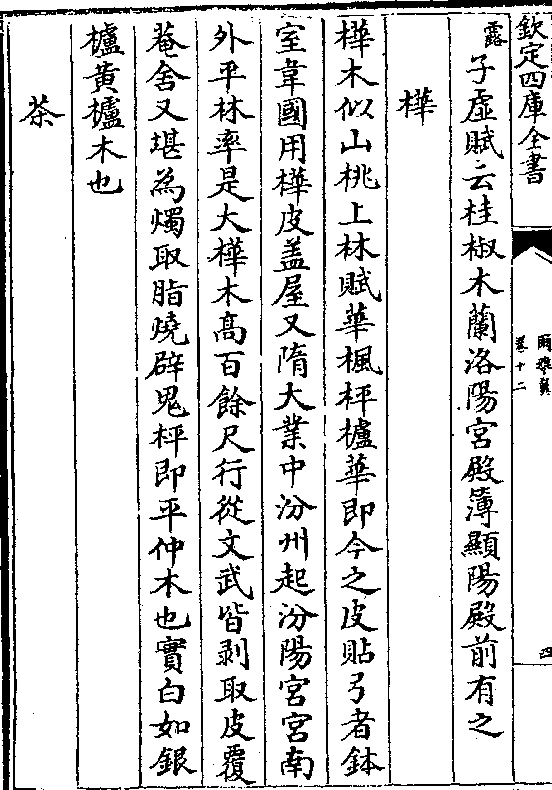 欽定四庫全書
爾雅翼
卷十二
四
露子虛賦云桂椒木蘭洛陽宮殿簿顯陽殿前有之
樺
樺木似山桃上林賦華楓枰櫨華即今之皮貼弓者鉢
室韋國用樺皮盖屋又隋大業中汾州起汾陽宮宮南
外平林率是大樺木高百餘尺行從文武皆剥取皮覆
菴舍又堪為燭取脂燒辟鬼枰即平仲木也實白如銀
櫨黄櫨木也
茶